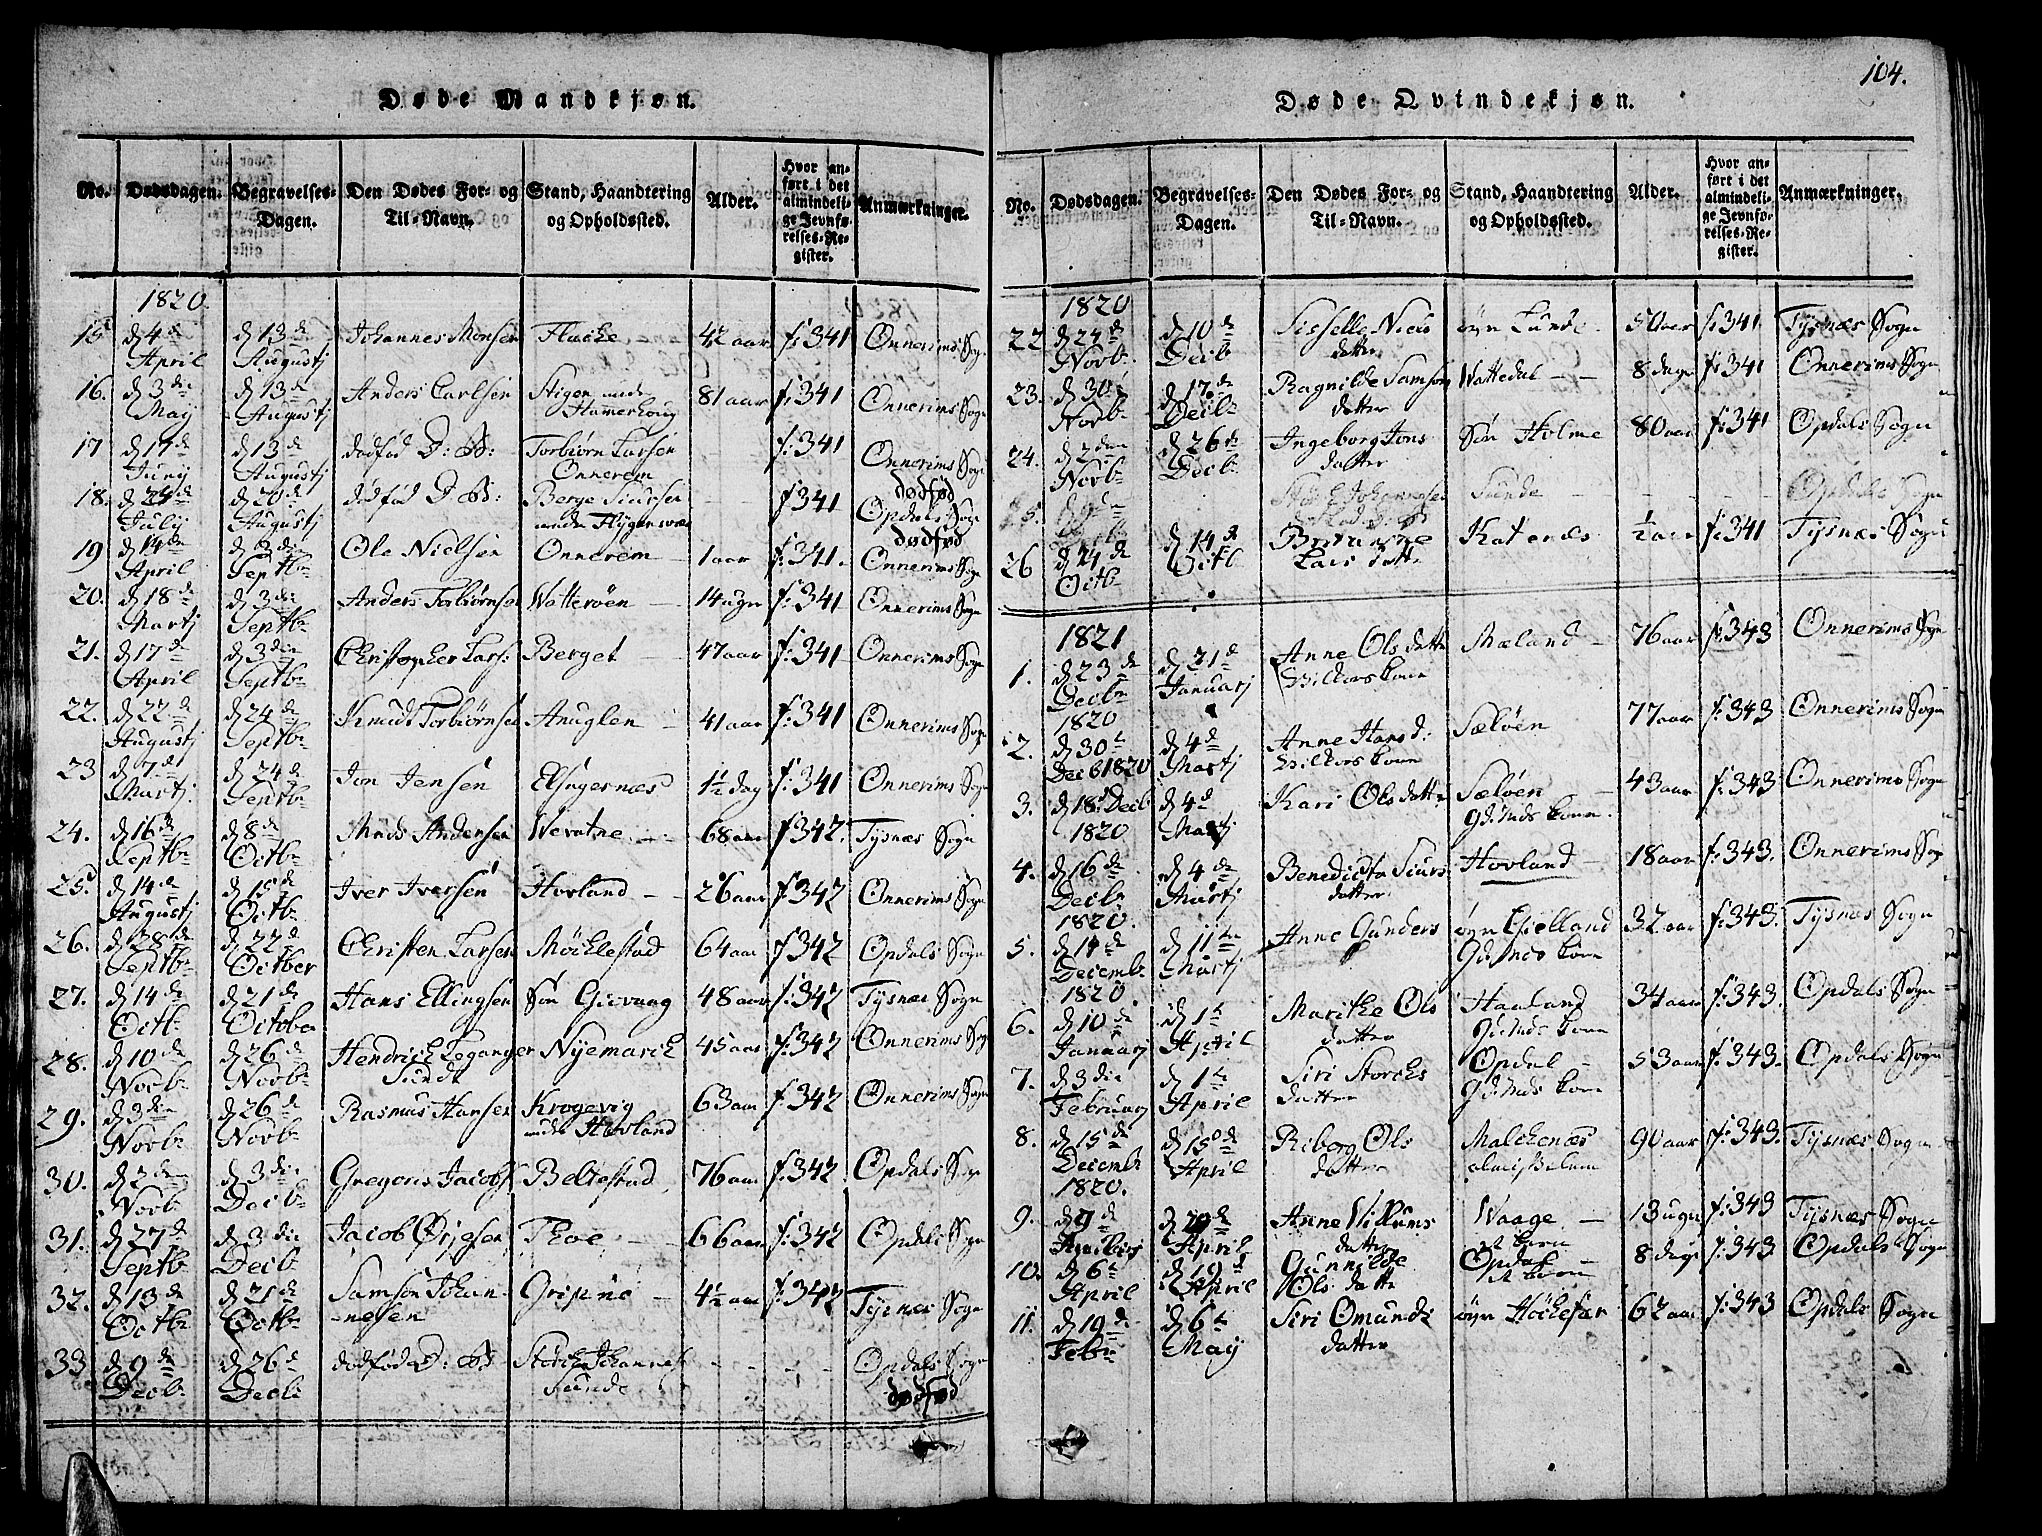 104.
Døde Mandkjøn.
No. Dødsdagen. Begravelses-Dagen. Den Dødes For- og Til-Navn. Stand, Haandtering og Opholdssted. Alder. Hvor anført i det almindelige Jevnførelses-Register. Anmærkninger.
1820.
15 d 4de April d 13de Augustj Johannes Monsen Flache 42 aar f: 341 Onnerims Sogn
16. d 3die May d 13de Augustj Anders Carlsen Stigen under Hamerhoug 81 aar f: 341 Onnerims Sogn
17 Junj d 13de Augustj dødfød D: B: Torbiørn Larsen Onnerem f: 341 Onnerims Sogn dødfød
18. July d 20de Augustj dødfød D: B: Berge Siursen under Flygensvær - - f: 341 Opdals Sogn dødfød
19 d 14de April d 3die Septbr Ole Nielsen Onnerem 1 aar f: 341. Onnerims Sogn
20. d 18de Martj d 3die Septbr Anders Torbiørnsen Watterøen 14 ugr f: 341 Onnerims Sogn
21. d 17de April d 3die Septbr Christopher Lars: Berget 47 aar f: 341 Onnerims Sogn
22. d 22de Augustj d 24de Septbr Knud Torbiørnsen Anuglen 41 aar f: 341 Onnerims Sogn
23 d 7de Martj. d 24de Septbr Jon Jensen Elsøgernæs 1½ dag f: 341 Onnerims Sogn
24. d 16de Septbr d 8de Octbr Mads Andersen Wevatne 68 aar f: 342. Tysnæs Sogn
25. d 14de Augustj d 15de Octbr Iver Iversen Hovland 26 aar f: 342 Onnerims Sogn
26. d 28de Septbr d 22de Octber Christen Larsen Møchlestad 64 aar f: 342 Opdals Sogn
27. d 14de Octbr d 21de October Hans Ellingsen Søn Giøvaag 48 aar f: 342 Tysnæs Sogn
28. d 10de Novbr d 26de Novbr Hendrich Leganger Sundt Nyemarch 45 aar f: 342 Onnerims Sogn
29. d 3die Novbr d 26de Novbr Rasmus Hansen Krogevig under Hovland 63 aar f: 342 Onnerims Sogn
30. d 2den Novb d 3die Decbr Gregorius Jacobs: Beltestad 76 aar f: 342. Opdals Sogn
31. d 27de Septbr d 3die Decb Jacob Ørjesen Thoe 66 aar f: 342 Opdals Sogn
32. d 13de Octbr d 21de Octbr Samson Johannesen Gripne 4½ aar f: 342 Tysnæs Sogn
33. d 9de Decbr d 26de Decbr dødfød D: B Storch Johannes: Sunde - - - - Opdals Sogn dødfød
Døde Qvindekjøn.
No. Dødsdagen. Begravelses-Dagen. Den Dødes For- og Til-Navn. Stand, Haandtering og Opholdssted. Alder. Hvor anført i det almindelige Jevnførelses-Register. Anmærkninger.
1820
22 d 24de Novbr d 10de Decbr Sisselle datter øyn Lunde 50 aar f: 341 Tysnæs Sogn
23. d 30te Novbr d 17de Decbr Ragnilde Samsons datter Wattedal - - 8 dage f: 341 Onnerims Sogn
24. d 2den Novbr d 26de Decbr Ingeborg Jons datter Søn Holme 80 aar f: 341 Opdals Sogn
Johannesen Sunde - - - - Opdals Sogn
26 d 24de Octbr d 14de Octb Lars datter Katenæs ½ aar f: 341 Tysnæs Sogn
1821
1. d 23de Decbr 1820 d 21de Januarj Anne Olsdatter Vilkorskone Mæland 76 aar f: 343 Onnerims Sogn
2. d 30te Decb 1820 d 4de Martj Anne Hansd: Vilkorskone Sæløen 77 aar f: 343 Onnerims Sogn
3. d 18de Decb 1820. d 4de Martj Kari Olsdatter Sæløen Gd:Mds kone. 43 aar f: 343 Onnerims Sogn
4. d 16de Decbr 1820. d 4de Martj Benedicta Siurs datter Hovland 18 aar f: 343. Onnerims Sogn
5. d 14de Decembr 1820. d 11te Martj Anne Gunders øyn Gielland Gd:Mds kone 32 aar f: 343. Tysnæs Sogn
6. d 10de Januarj d 1te April Marithe Ols datter Haaland Gd:Mds kone 34 aar f: 343. Opdals Sogn
7. d 3die Februarj d 1te April Siri Storchs datter Opdal - Gd:Mds kone 53 aar f: 343. Opdals Sogn
8. d 15de Decembr 1820. d 15de April Riborg Ols datter Malchenæs almisselem 90 aar f: 343. Tysnæs Sogn
9. d 9de d 29de April Anne Willums datter Waage - et barn 13 ugr f: 343 Tysnæs Sogn
10. d 6te April d 19de April Gunnilde Ols datter Opdal et barn 8 dage f: 343 Opdals Sogn
11. d 19de Febr d 6te May Siri Omunds datter øyn Høchefær 62 aar f: 343 Opdals Sogn